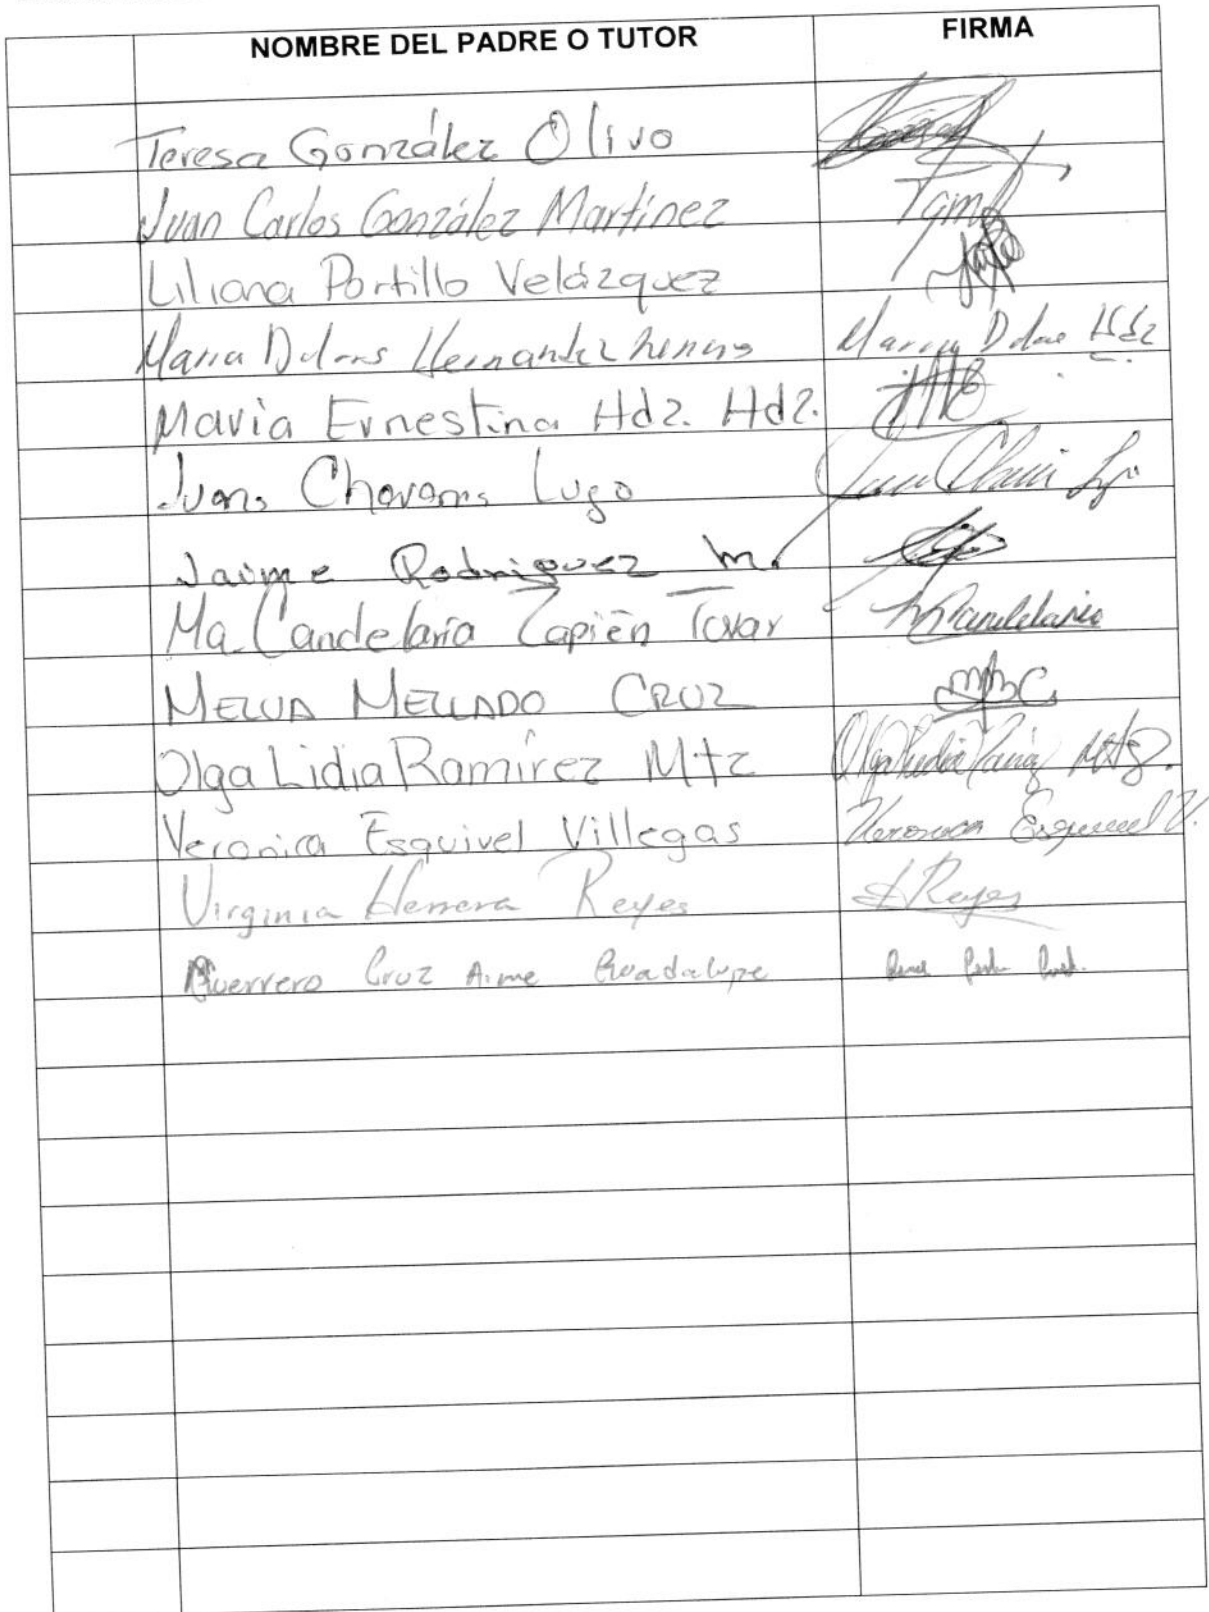 NOMBRE DEL PADRE O TUTOR FIRMA
Teresa González Olivo
Juan Carlos González Martínez
Liliana Portillo Velázquez
Maria Dolores Hernandez Maria Dolores Hdz
María Ernestina Hdz. Hdz.
Juana Lugo
Jaime Rodriguez M.
Ma Candelaria Zapién Tovar Candelaria
MELVA MELLADO CRUZ
Olga Lidia Ramírez Mtz Olga Lidia Mtz.
Veronica Esquivel Villegas Veronica Esquivel V.
Virginia Herrera Reyes Reyes
Guerrero Cruz Aime Guadalupe